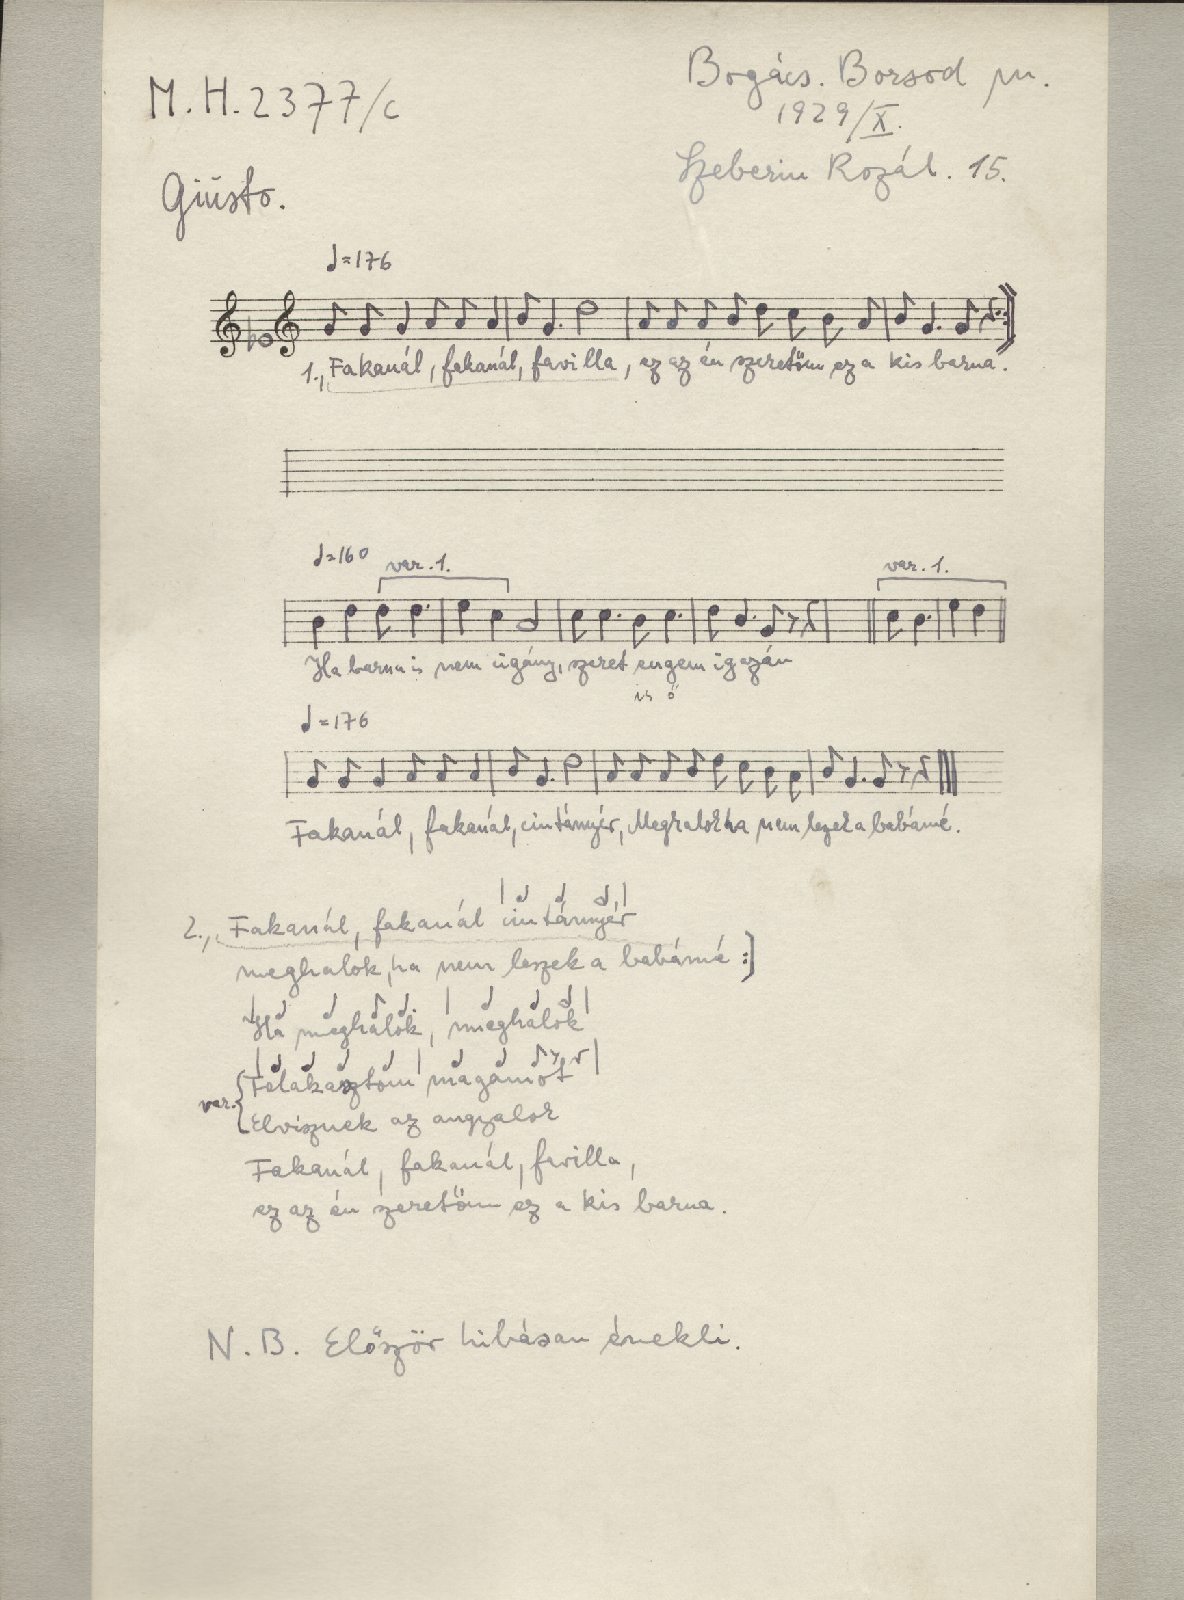 M.H. 2377/c
Bogács. Borsod m.
1929/X.
Szeberin Rozál. 15.
Giústo.
♩=176
1., Fakanál, fakanál, favilla, ez az én szeretőm ez a kis barna.
♩=160
var. 1.
var. 1.
Ha barna is nem cigány, szeret engem igazán
is ő
♩=176
Fakanál, fakanál, cintányér, Meghalok ha nem leszek a babámé.
2., Fakanál, fakanál cintányér
meghalok, ha nem leszek a babámé :]
Ha meghalok, meghalok
Felakasztom magamot
var. { Elvisznek az angyalok
Fakanál, fakanál, favilla,
ez az én szeretőm ez a kis barna.
N.B. Először hibásan énekli.